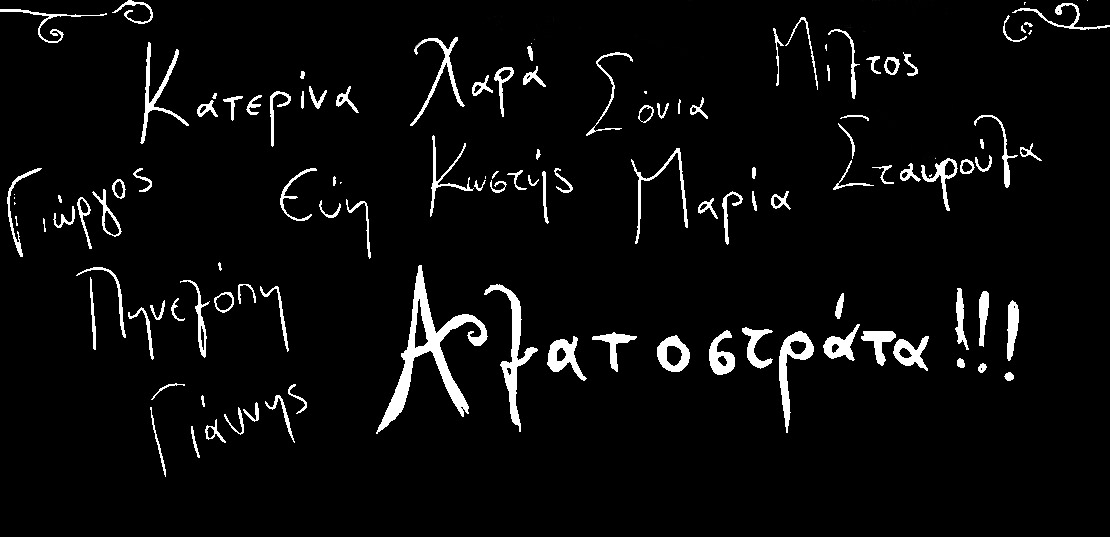 Κατερίνα Χαρά Σόνια Μίλτος
Γιώργος Εύη Κωστής Μαρία Σταυρούλα
Πηνελόπη Αλατοστράτα!!!
Γιάννης